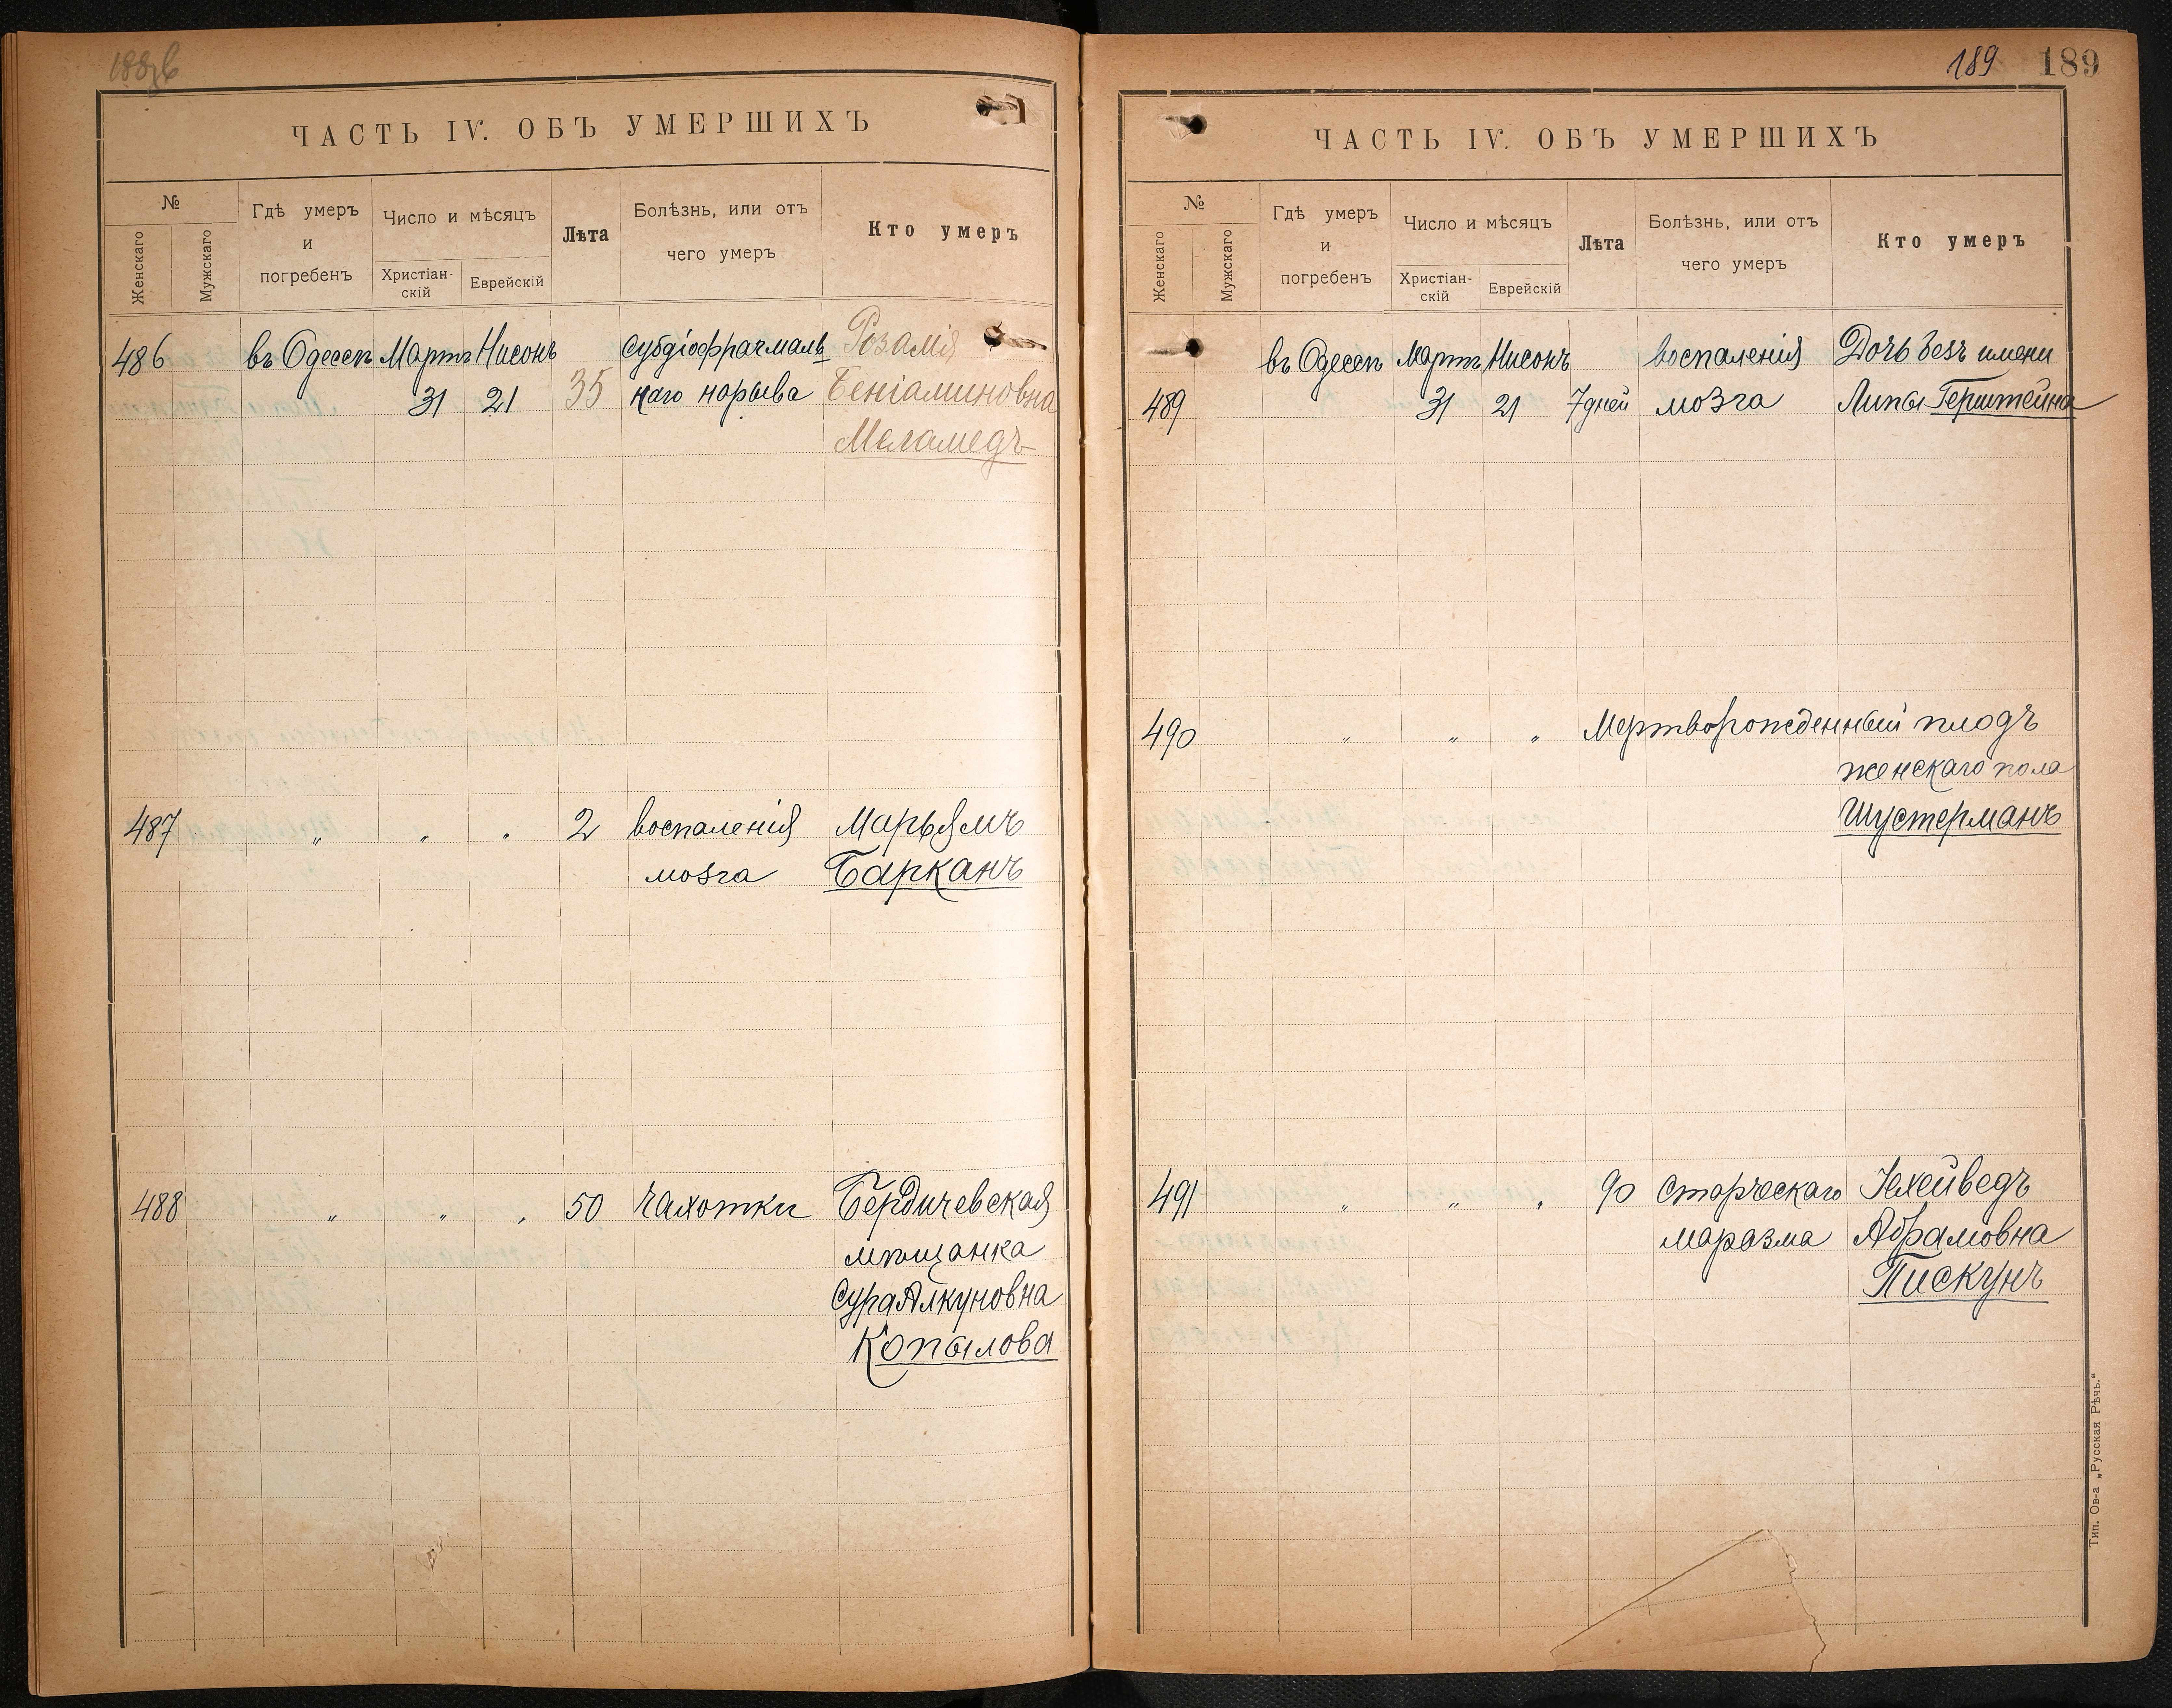 188об
ЧАСТЬ IV. ОБЪ УМЕРШИХЪ
№
Женскаго
Мужскаго
Гдѣ умеръ
и
погребенъ
Число и мѣсяцъ
Христіан-
скій
Еврейскій
Лѣта
Болѣзнь, или отъ
чего умеръ
Кто умеръ
486 въ Одессѣ Мартъ Нисонъ субдіофрагмаль Розалія
31 21 35 наго нарыва Беніаминовна
Меламедъ
487 " " " 2 воспаленія Марьямъ
мозга Барканъ
488 " " " 50 чахотки Бердичевская
мѣщанка
Сура Алкуновна
Копылова
189 189
ЧАСТЬ IV. ОБЪ УМЕРШИХЪ
№
Женскаго
Мужскаго
Гдѣ умеръ
и
погребенъ
Число и мѣсяцъ
Христіан-
скій
Еврейскій
Лѣта
Болѣзнь, или отъ
чего умеръ
Кто умеръ
въ Одессѣ Мартъ Нисонъ воспаленія Дочь безъ имени
489 31 21 7 дней мозга Липы Герштейна
490 " " " Мертворожденный плодъ
женскаго пола
Шустерманъ
491 " " " 90 старческаго Іехейведъ
маразма Абрамовна
Пискунъ
Тип. Ов-а „Русская Рѣчь."